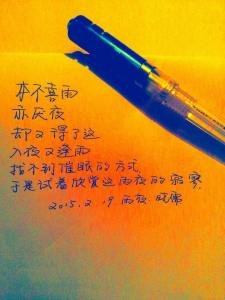 本不喜雨
亦厌夜
却又得了这
入夜又逢雨
找不到催眠的方式
于是试着欣赏这雨夜的寂寞
2015.2.19 雨夜.